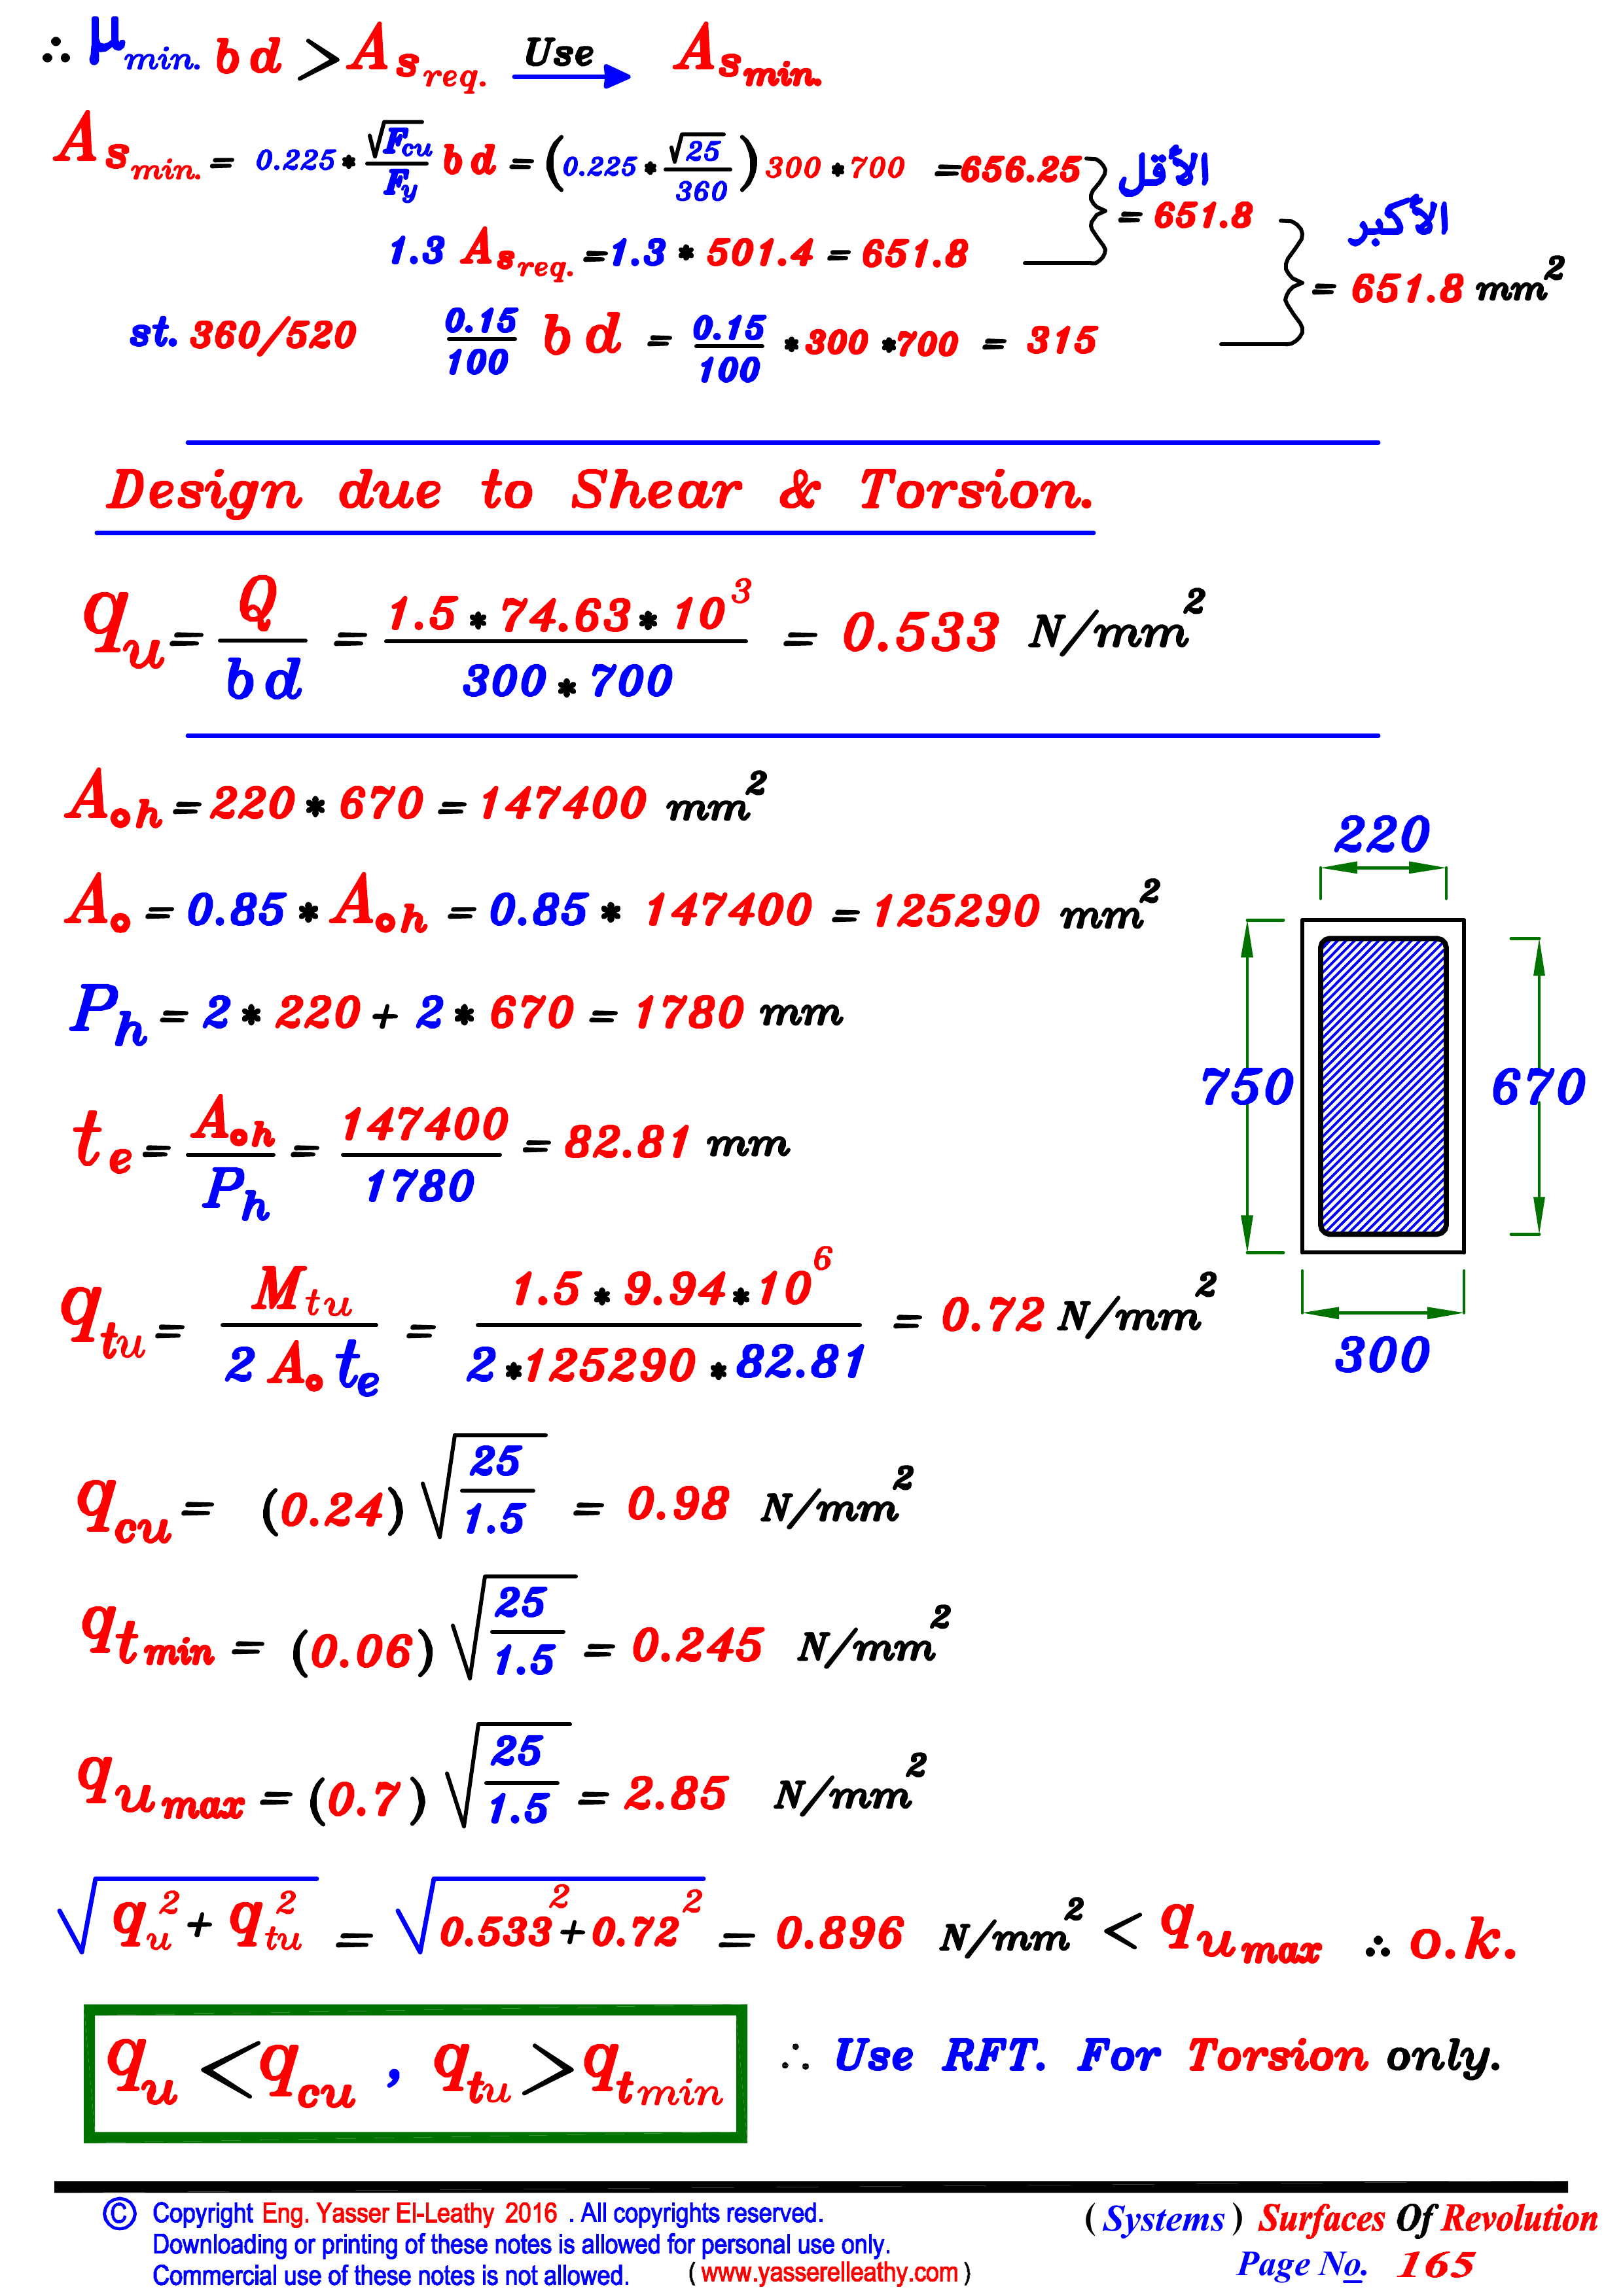 ∴ μmin. b d > Asreq. Use → Asmin.
Asmin. = 0.225 * √Fcu / Fy b d = (0.225 * √25 / 360) 300 * 700 = 656.25 الأقل
1.3 Asreq. = 1.3 * 501.4 = 651.8 = 651.8 الأكبر
= 651.8 mm²
st. 360/520 0.15/100 b d = 0.15/100 * 300 * 700 = 315
Design due to Shear & Torsion.
qu = Q / b d = 1.5 * 74.63 * 10³ / 300 * 700 = 0.533 N/mm²
Aoh = 220 * 670 = 147400 mm²
Ao = 0.85 * Aoh = 0.85 * 147400 = 125290 mm²
Ph = 2 * 220 + 2 * 670 = 1780 mm
te = Aoh / Ph = 147400 / 1780 = 82.81 mm
220
750
670
300
qtu = Mtu / 2 Ao te = 1.5 * 9.94 * 10⁶ / 2 * 125290 * 82.81 = 0.72 N/mm²
qcu = (0.24) √25/1.5 = 0.98 N/mm²
qtmin = (0.06) √25/1.5 = 0.245 N/mm²
qumax = (0.7) √25/1.5 = 2.85 N/mm²
√qu² + qtu² = √0.533² + 0.72² = 0.896 N/mm² < qumax ∴ o.k.
qu < qcu , qtu > qtmin ∴ Use RFT. For Torsion only.
© Copyright Eng. Yasser El-Leathy 2016 . All copyrights reserved.
Downloading or printing of these notes is allowed for personal use only.
Commercial use of these notes is not allowed. ( www.yasserelleathy.com )
( Systems ) Surfaces Of Revolution
Page No. 165